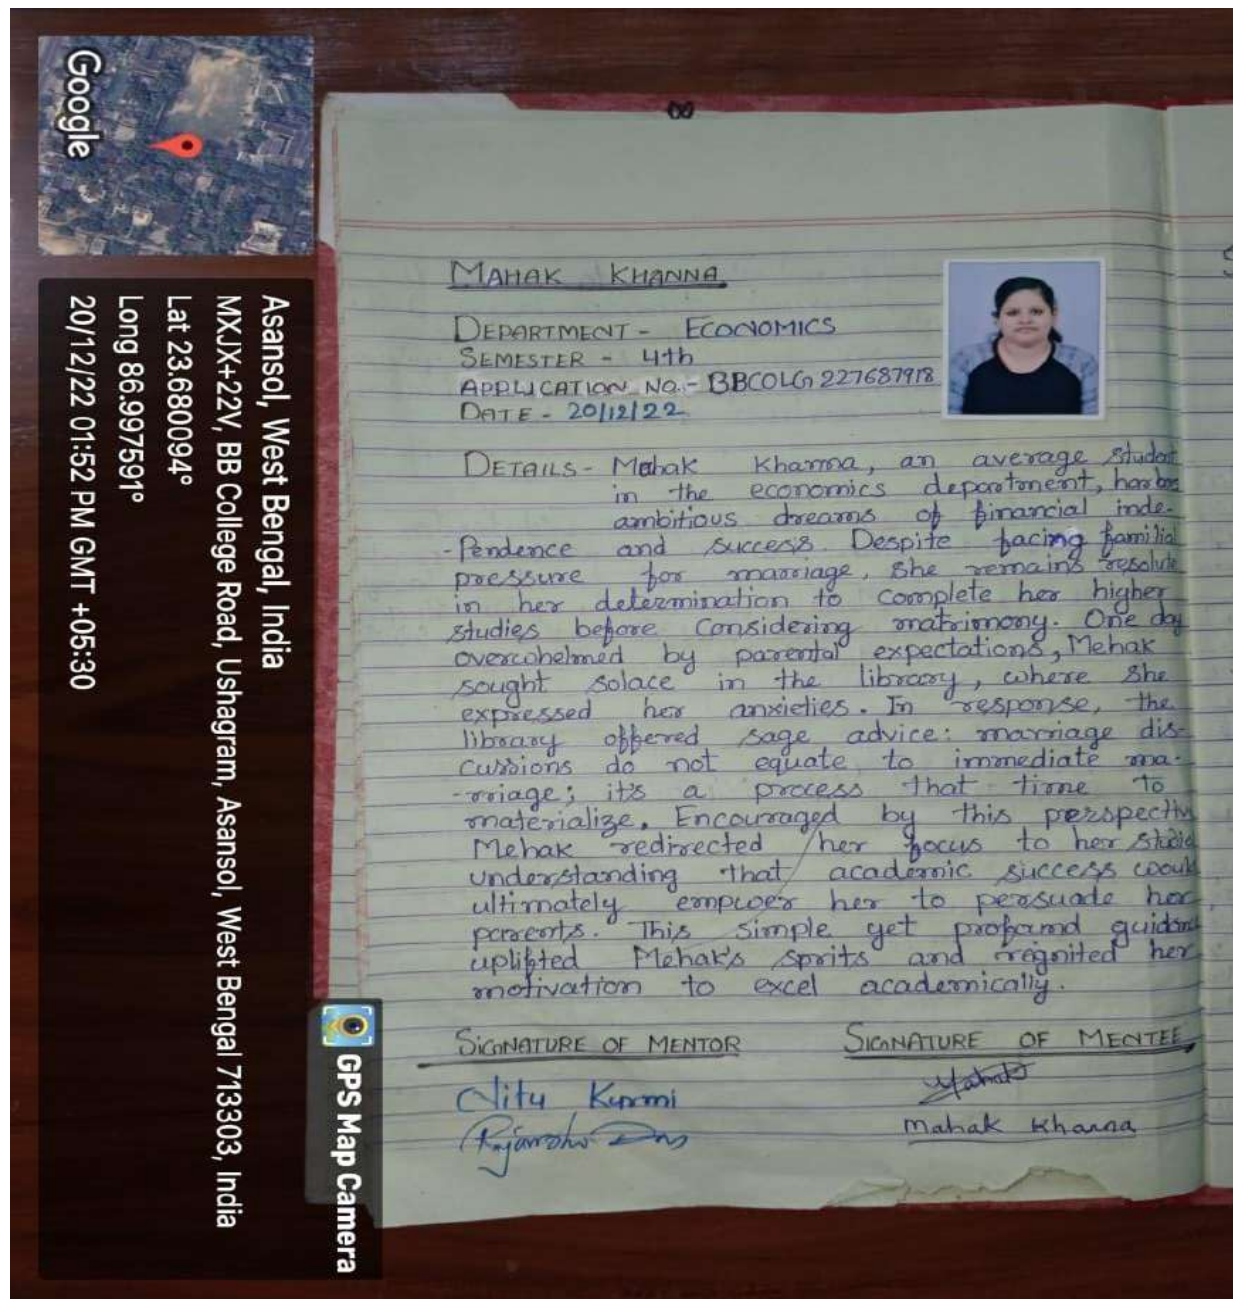 Google
Asansol, West Bengal, India
MXJX+22V, BB College Road, Ushagram, Asansol, West Bengal 713303, India
Lat 23.680094°
Long 86.997591°
20/12/22 01:52 PM GMT +05:30
GPS Map Camera
MAHAK KHANNA
DEPARTMENT - ECONOMICS
SEMESTER - 4th
APPLICATION NO. - BBCOLG 227687918
DATE - 20/12/22
DETAILS - Mahak Khanna, an average student
in the economics department, harbor
ambitious dreams of financial inde-
-Pendence and success. Despite facing familial
pressure for marriage, she remains resolute
in her determination to complete her higher
studies before considering matrimony. One day
overwhelmed by parental expectations, Mehak
sought solace in the library, where she
expressed her anxieties. In response, the
library offered sage advice: marriage dis-
cussions do not equate to immediate ma-
-rriage; it's a process that time to
materialize. Encouraged by this perspectiv
Mehak redirected her focus to her studie
understanding that academic success would
ultimately empwer her to persuade her
parents. This simple yet profound guidanc
uplifted Mehak's sprits and regnited her
motivation to excel academically.
SIGNATURE OF MENTOR SIGNATURE OF MENTEE
Nitu Kurmi Mahak
Das mahak Khanna